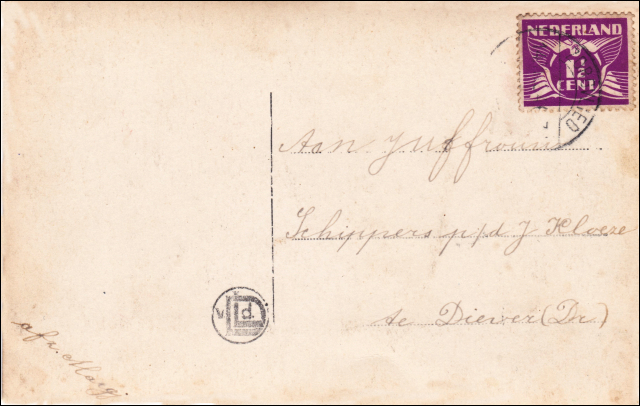 NEDERLAND
1½
CENT
Aan Juffrouw
Schippers p/d J Kloeze
te Diever (Dr.)
d.
afz.